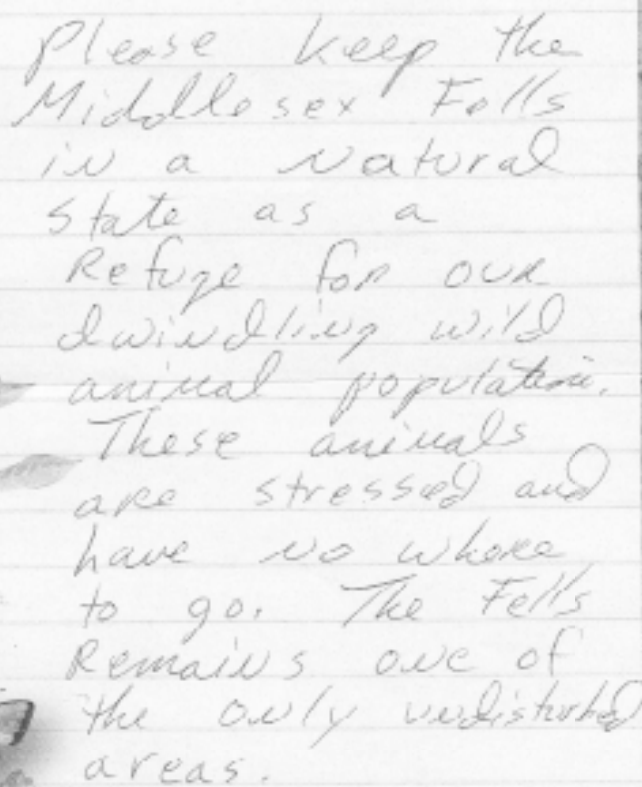 Please keep the
Middlesex Fells
in a natural
state as a
Refuge for our
dwindling wild
animal population.
These animals
are stressed and
have no where
to go. The Fells
Remains one of
the only undisturbed
areas.